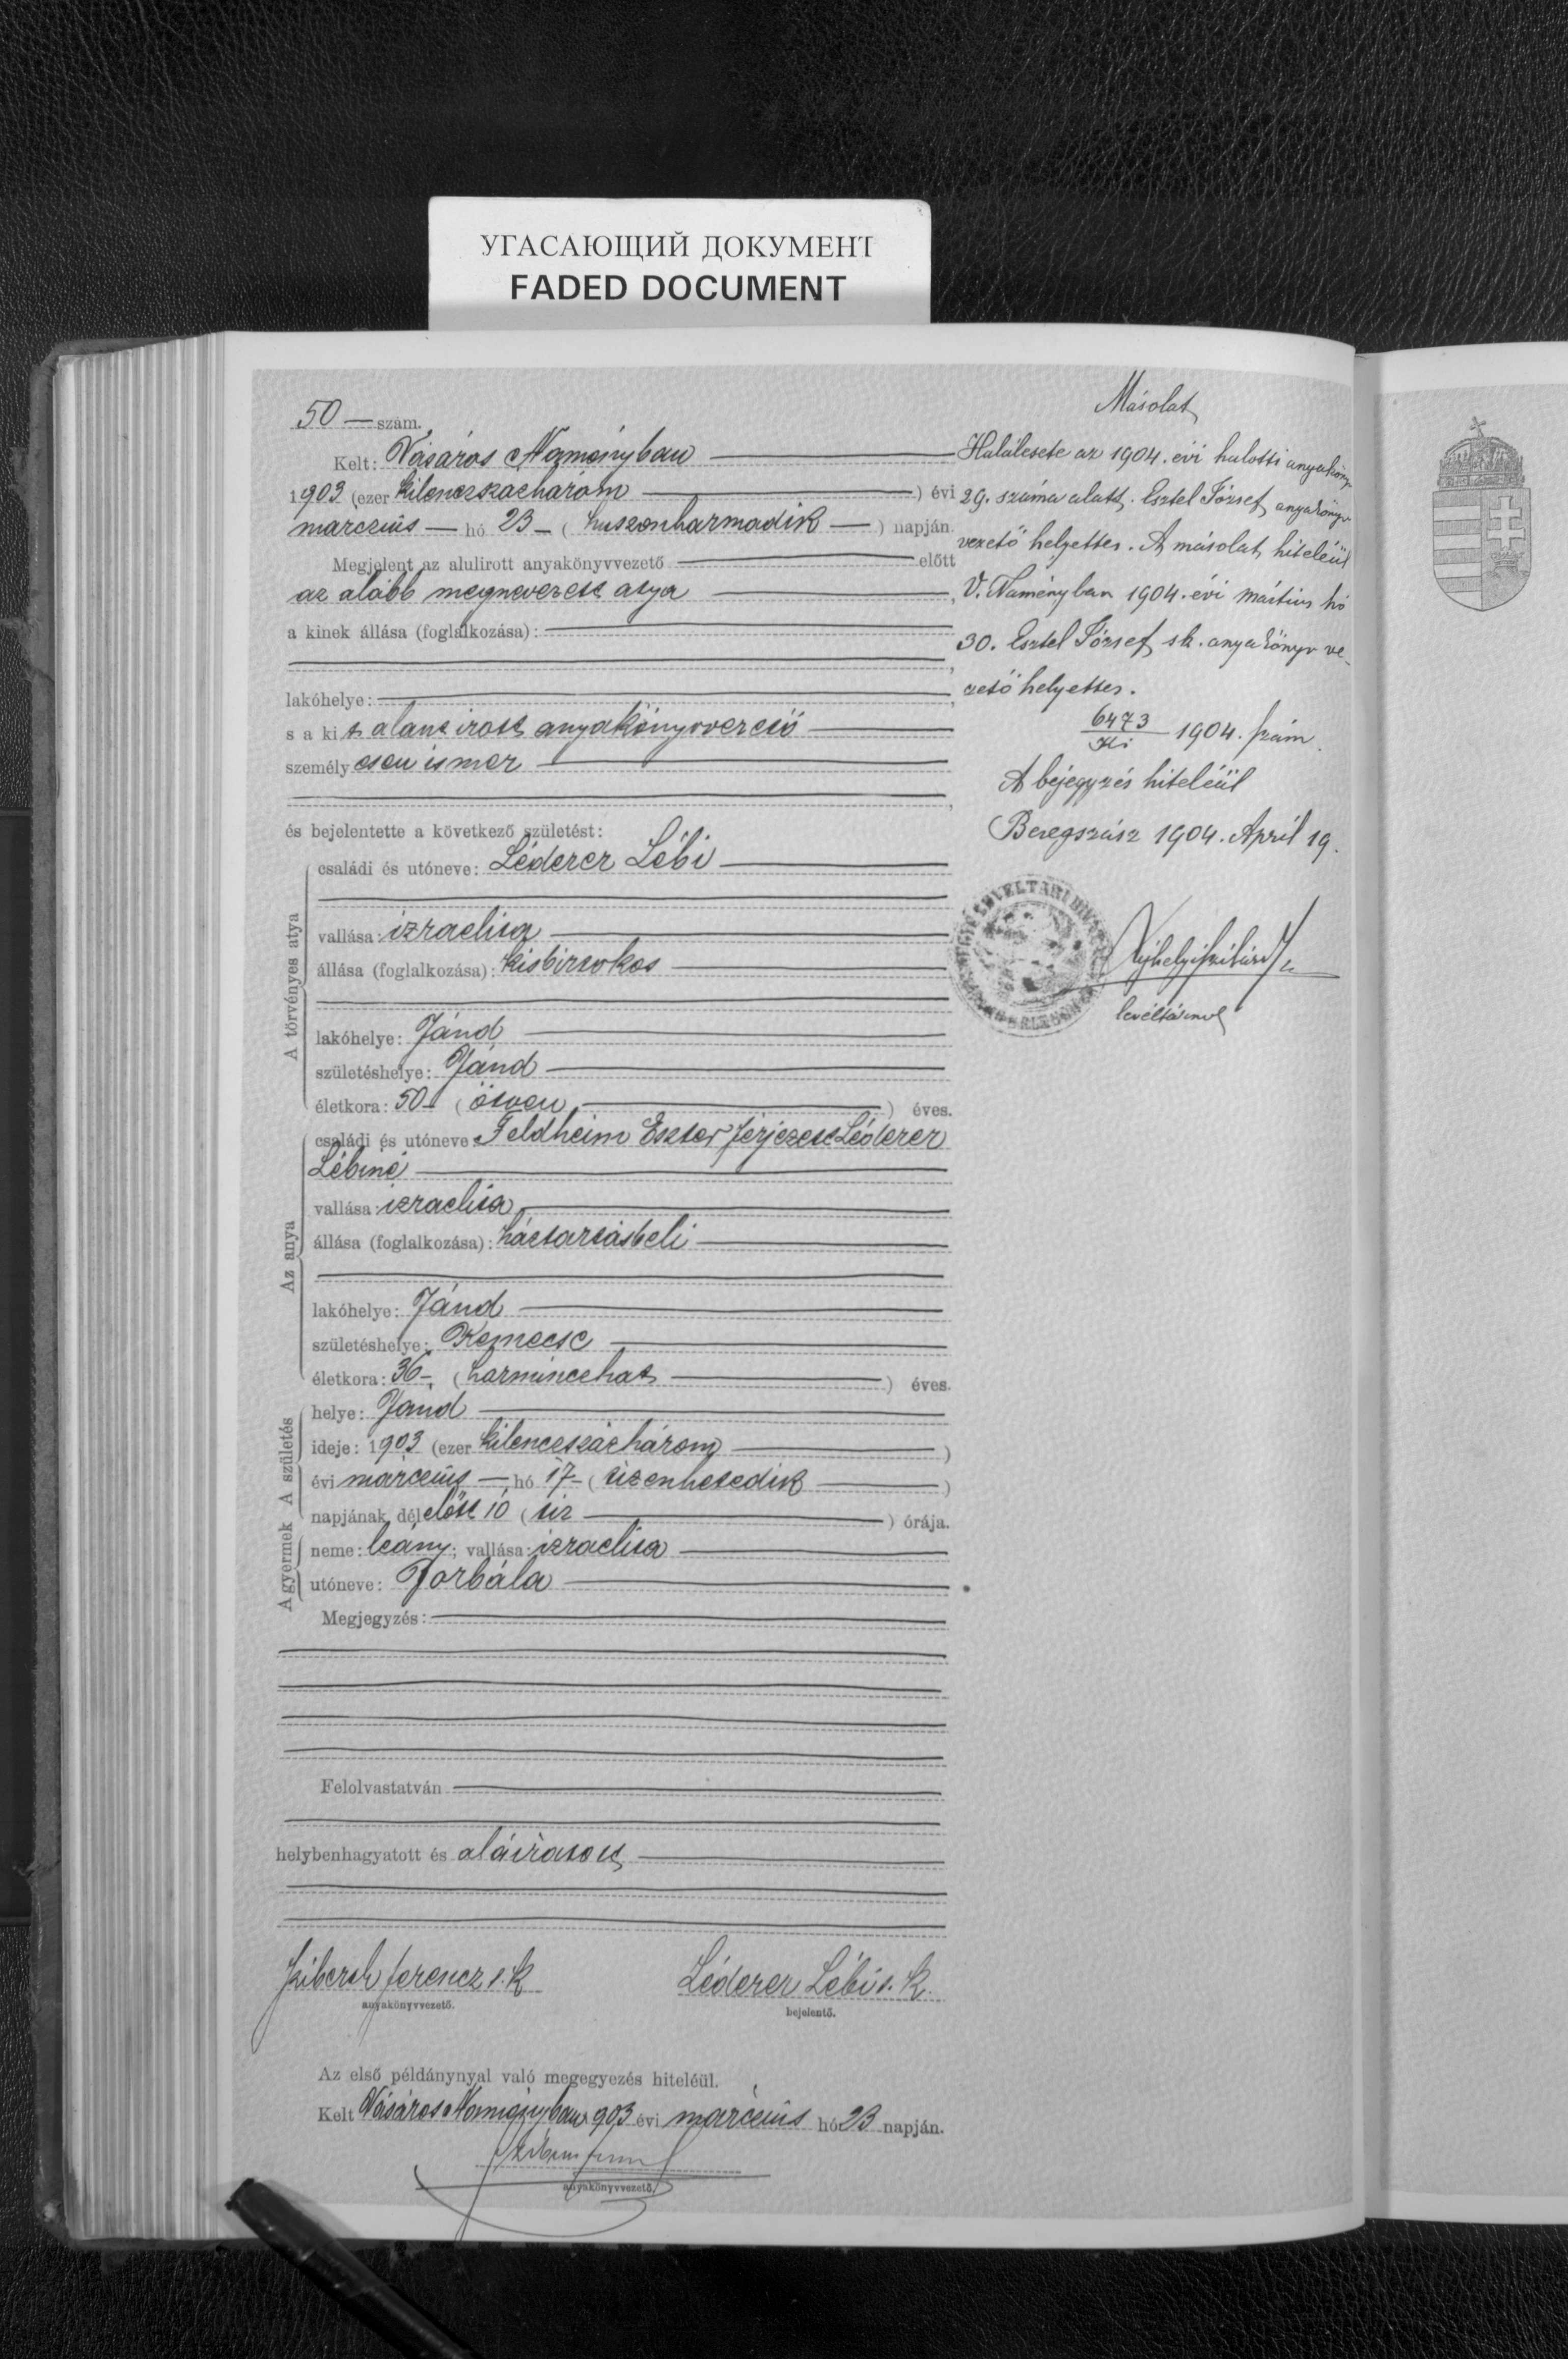 УГАСАЮЩИЙ ДОКУМЕНТ
FADED DOCUMENT
50 — szám.
Kelt: Vásáros Naményban
1903 (ezer kilenczszázhárom) évi
márczius — hó 23 — (huszonharmadik —) napján.
Megjelent az alulirott anyakönyvvezető — előtt
az alább megnevezett atya
a kinek állása (foglalkozása):
lakóhelye:
s a kit alant irott anyakönyvvezető
személyesen ismer
és bejelentette a következő születést:
A törvényes atya
családi és utóneve: Léderer Lébi
vallása: izraelita
állása (foglalkozása): kisbirtokos
lakóhelye: Jánd
születéshelye: Jánd
életkora: 50 (ötven) éves.
Az anya
családi és utóneve: Feldheim Eszter férjezett Léderer
Lébiné
vallása: izraelita
állása (foglalkozása): háztartásbeli
lakóhelye: Jánd
születéshelye: Kemecse
életkora: 36 — (harminczhat) éves.
A születés
helye: Jánd
ideje: 1903 (ezer kilenczszázhárom)
évi márczius — hó 17 — (tizenhetedik)
napjának délelőtt 10 (tiz) órája.
A gyermek
neme: leány; vallása: izraelita
utóneve: Borbála
Megjegyzés:
Felolvastatván
helybenhagyatott és aláiratott
Ferencz s. k.
anyakönyvvezető.
Léderer Lébi s. k.
bejelentő.
Az első példánynyal való megegyezés hiteléül.
Kelt Vásáros Naményban 903 évi márczius hó 23 napján.
anyakönyvvezető.
Másolat
Halálesete az 1904. évi halotti anyakönyv
29. száma alatt. Esztel József anyakönyv
vezető helyettes. A másolat hiteléül
V. Naményban 1904. évi mártius hó
30. Esztel József sk. anyakönyv ve-
zető helyettes.
6473
Ki 1904. szám.
A bejegyzés hiteléül
Beregszász 1904. April 19.
levéltárnok